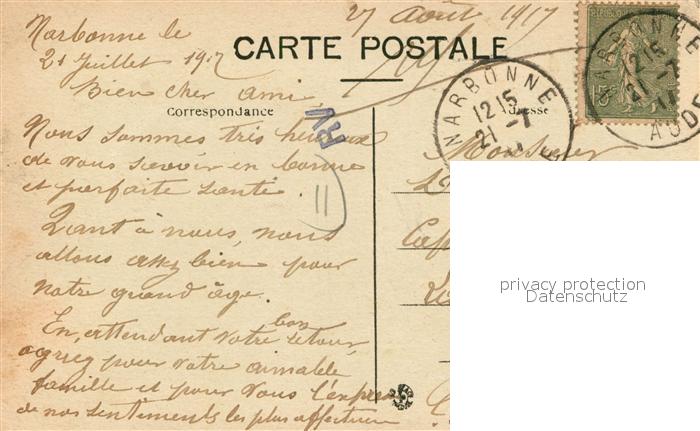 27 Août 1917
Narbonne le
21 Juillet 1917
CARTE POSTALE
Bien cher ami
Correspondance
Nous sommes très heureux
de vous savoir en bonne
et parfaite santé.
Quant à nous, nous
allons assez bien pour
notre grand âge.
En, attendant votre bon retour,
agréez pour votre aimable
famille et pour vous l'expres
de nos sentiments les plus affectueux
RV
11
NARBONNE
12 15
21 - 7
NARBONNE
12 15
21 - 7
17
AUDE
15c
Adresse
Monsieur
privacy protection
Datenschutz